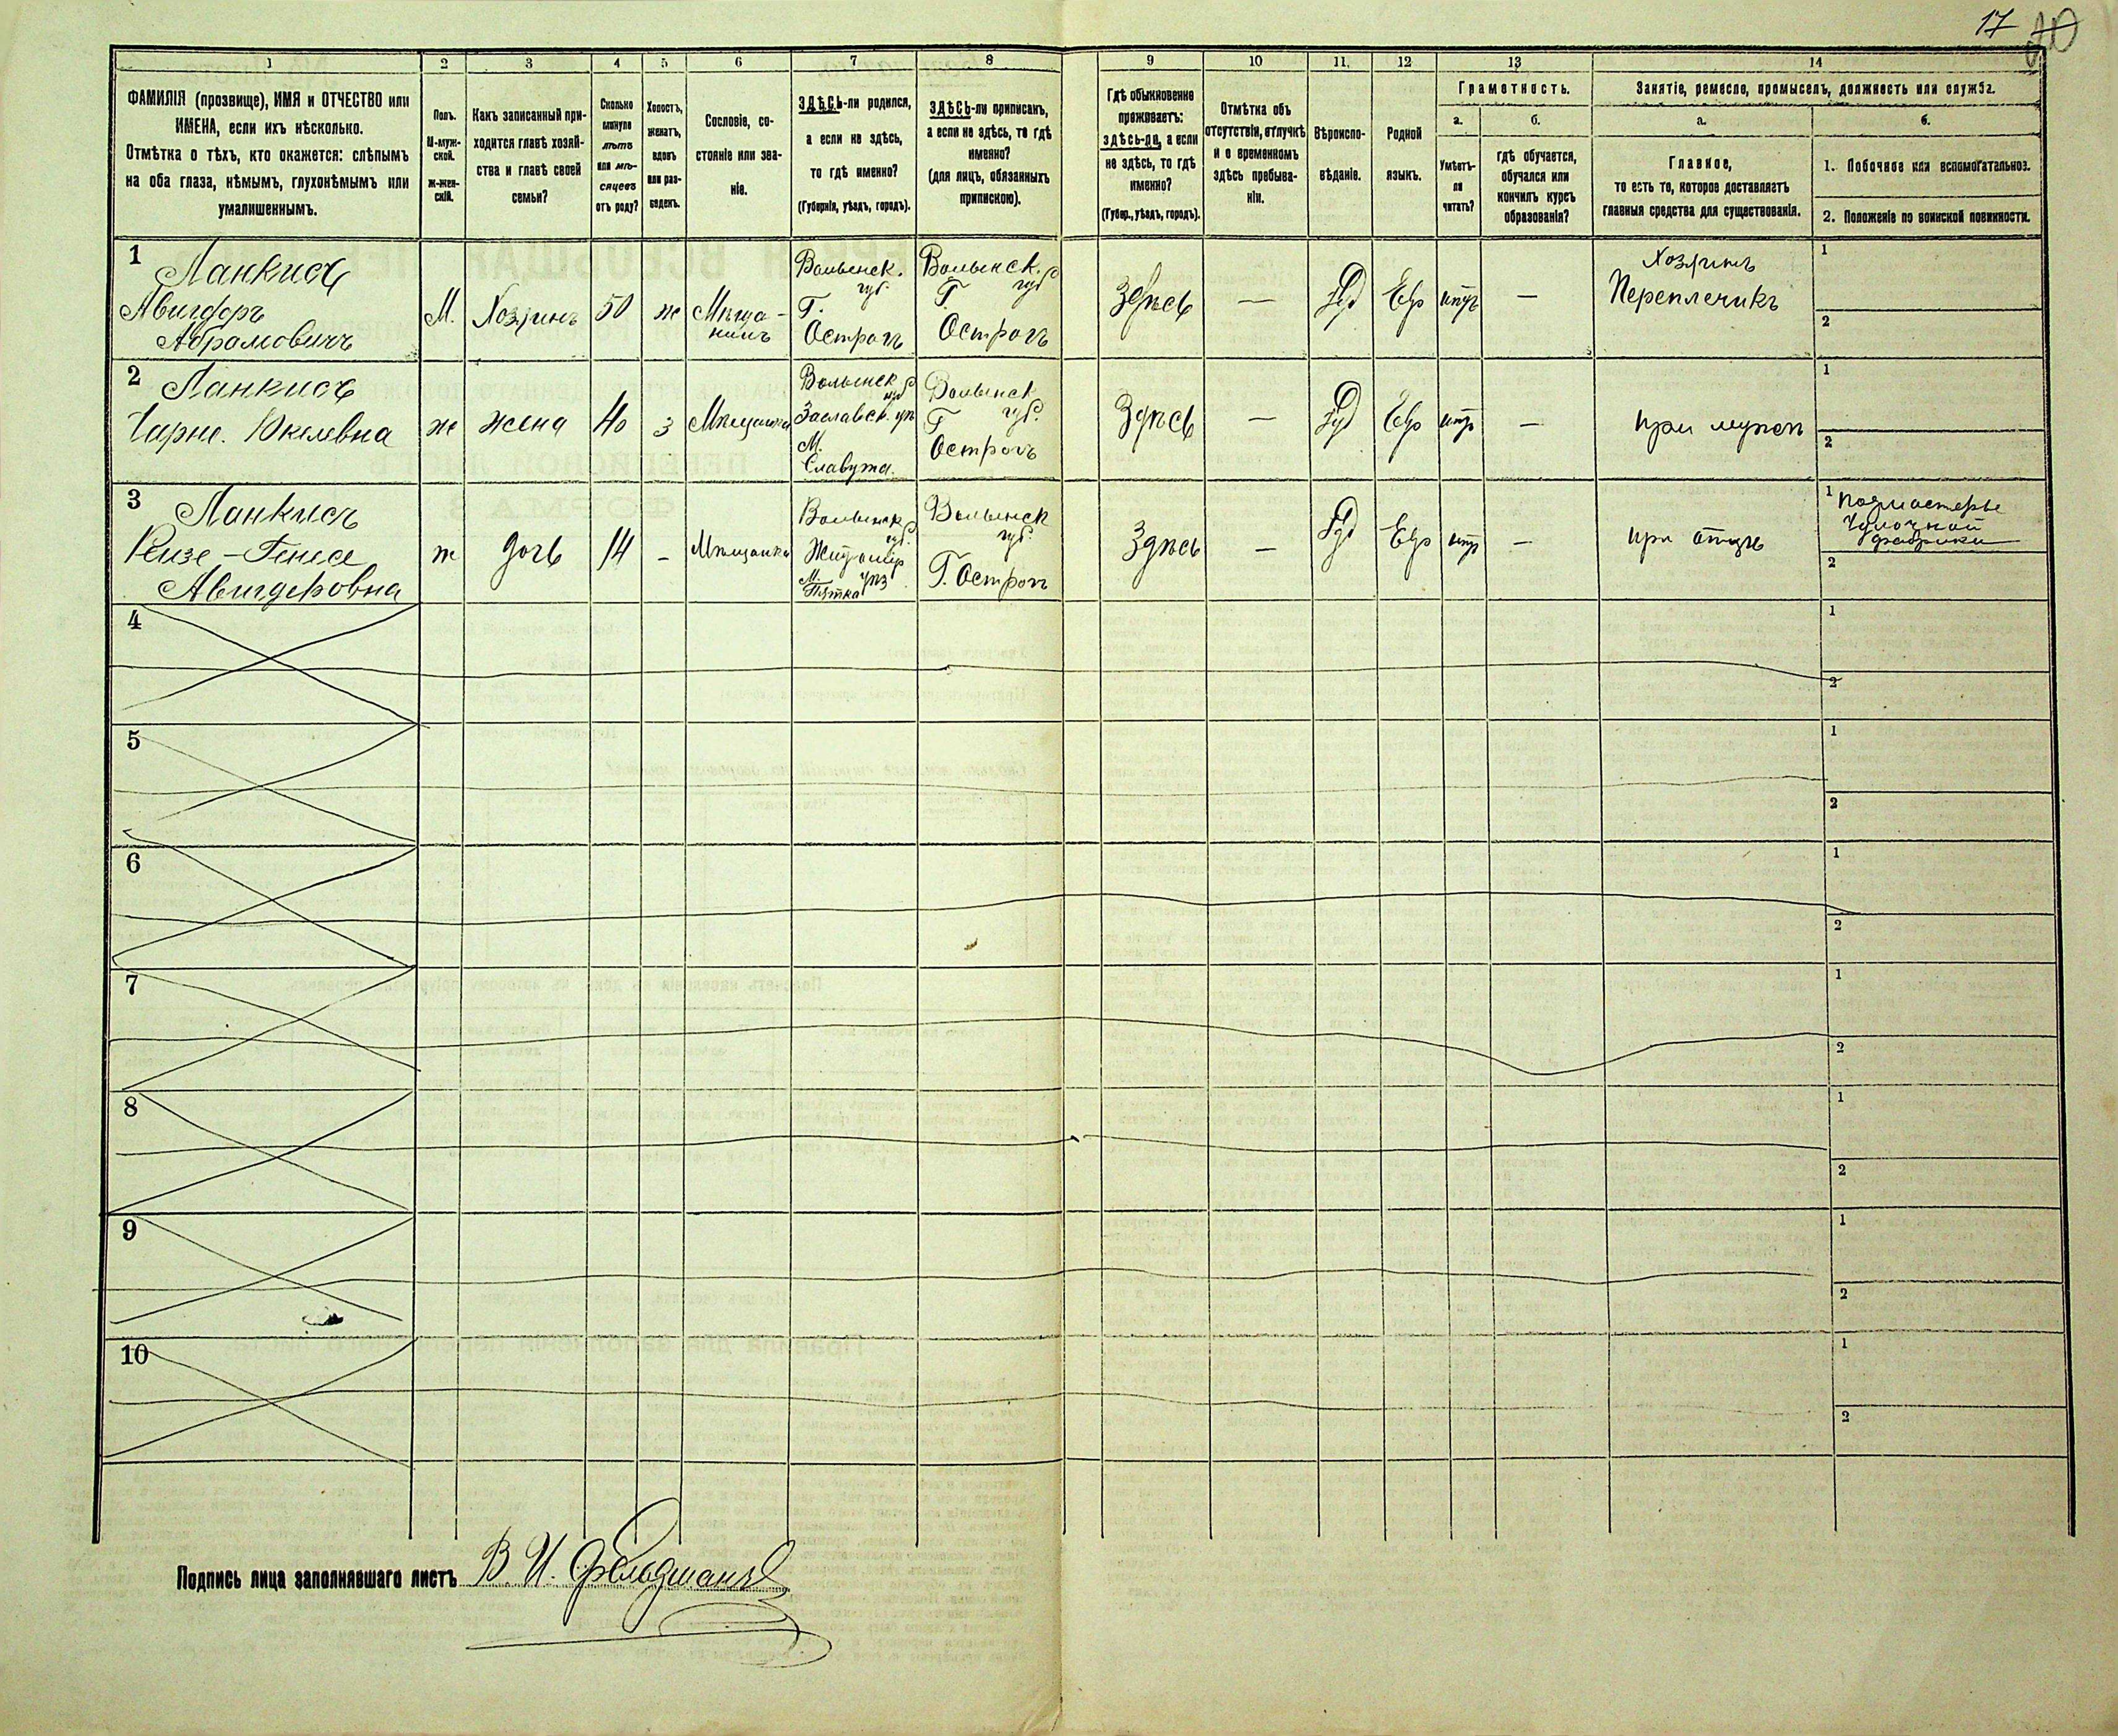 17
1
2
3
4
5
6
7
8
9
10
11.
12
13
14
ФАМИЛІЯ (прозвище), ИМЯ и ОТЧЕСТВО или
ИМЕНА, если ихъ нѣсколько.
Отмѣтка о тѣхъ, кто окажется: слѣпымъ
на оба глаза, нѣмымъ, глухонѣмымъ или
умалишеннымъ.
Полъ.
М-муж-
ской.
ж-жен-
скій.
Какъ записанный при-
ходится главѣ хозяй-
ства и главѣ своей
семьи?
Сколько
минуло
лѣтъ
или мѣ-
сяцевъ
отъ роду?
Холостъ,
женатъ,
вдовъ
или раз-
веденъ.
Сословіе, со-
стояніе или зва-
ніе.
ЗДѢСЬ-ли родился,
а если не здѣсь,
то гдѣ именно?
(Губернія, уѣздъ, городъ).
ЗДѢСЬ-ли приписанъ,
а если не здѣсь, то гдѣ
именно?
(для лицъ, обязанныхъ
припискою).
Гдѣ обыкновенно
проживаетъ:
здѣсь-ли, а если
не здѣсь, то гдѣ
именно?
(Губер., уѣздъ, городъ).
Отмѣтка объ
отсутствіи, отлучкѣ
и о временномъ
здѣсь пребыва-
ніи.
Вѣроиспо-
вѣданіе.
Родной
языкъ.
Грамотность.
а.
Умѣетъ-
ли
читать?
б.
гдѣ обучается,
обучался или
кончилъ курсъ
образованія?
Занятіе, ремесло, промыселъ, должность или служба.
а.
Главное,
то есть то, которое доставляетъ
главныя средства для существованія.
б.
1. Побочное или вспомогательное.
2. Положеніе по воинской повинности.
1
Ланкисъ
Авигдоръ
Абрамовичъ
М.
Хозяинъ
50
ж
Мѣща-
нинъ
Волынск.
губ.
Г.
Острогъ
Волынск.
губ
Г
Острогъ
Здѣсь
—
Іуд
Евр
—
Хозяинъ
Переплечикъ
1
2
2
Ланкисъ
Чарне. Юкелевна
ж
жена
40
з
Мѣщанка
Волынск
губ
Заславск. уѣ
М.
Славута.
Волынск
губ.
Г
Острогъ
Здѣсь
—
Іуд
Евр
—
при мужѣ
1
2
3
Ланкисъ
Рейзе-Генесе
Авигдоровна
ж
дочь
14
-
Мѣщанка
Волынск
губ.
Житомір
уѣз
М.
Пятка
Волынск
губ.
Г. Острогъ
Здѣсь
—
Іуд
Евр
—
при отцѣ
1 Подмастерье
Чулочной
фабрики
2
4
1
2
5
1
2
6
1
2
7
1
2
8
1
2
9
1
2
10
1
2
Подпись лица заполнявшаго листъ В. И. Фельдманъ